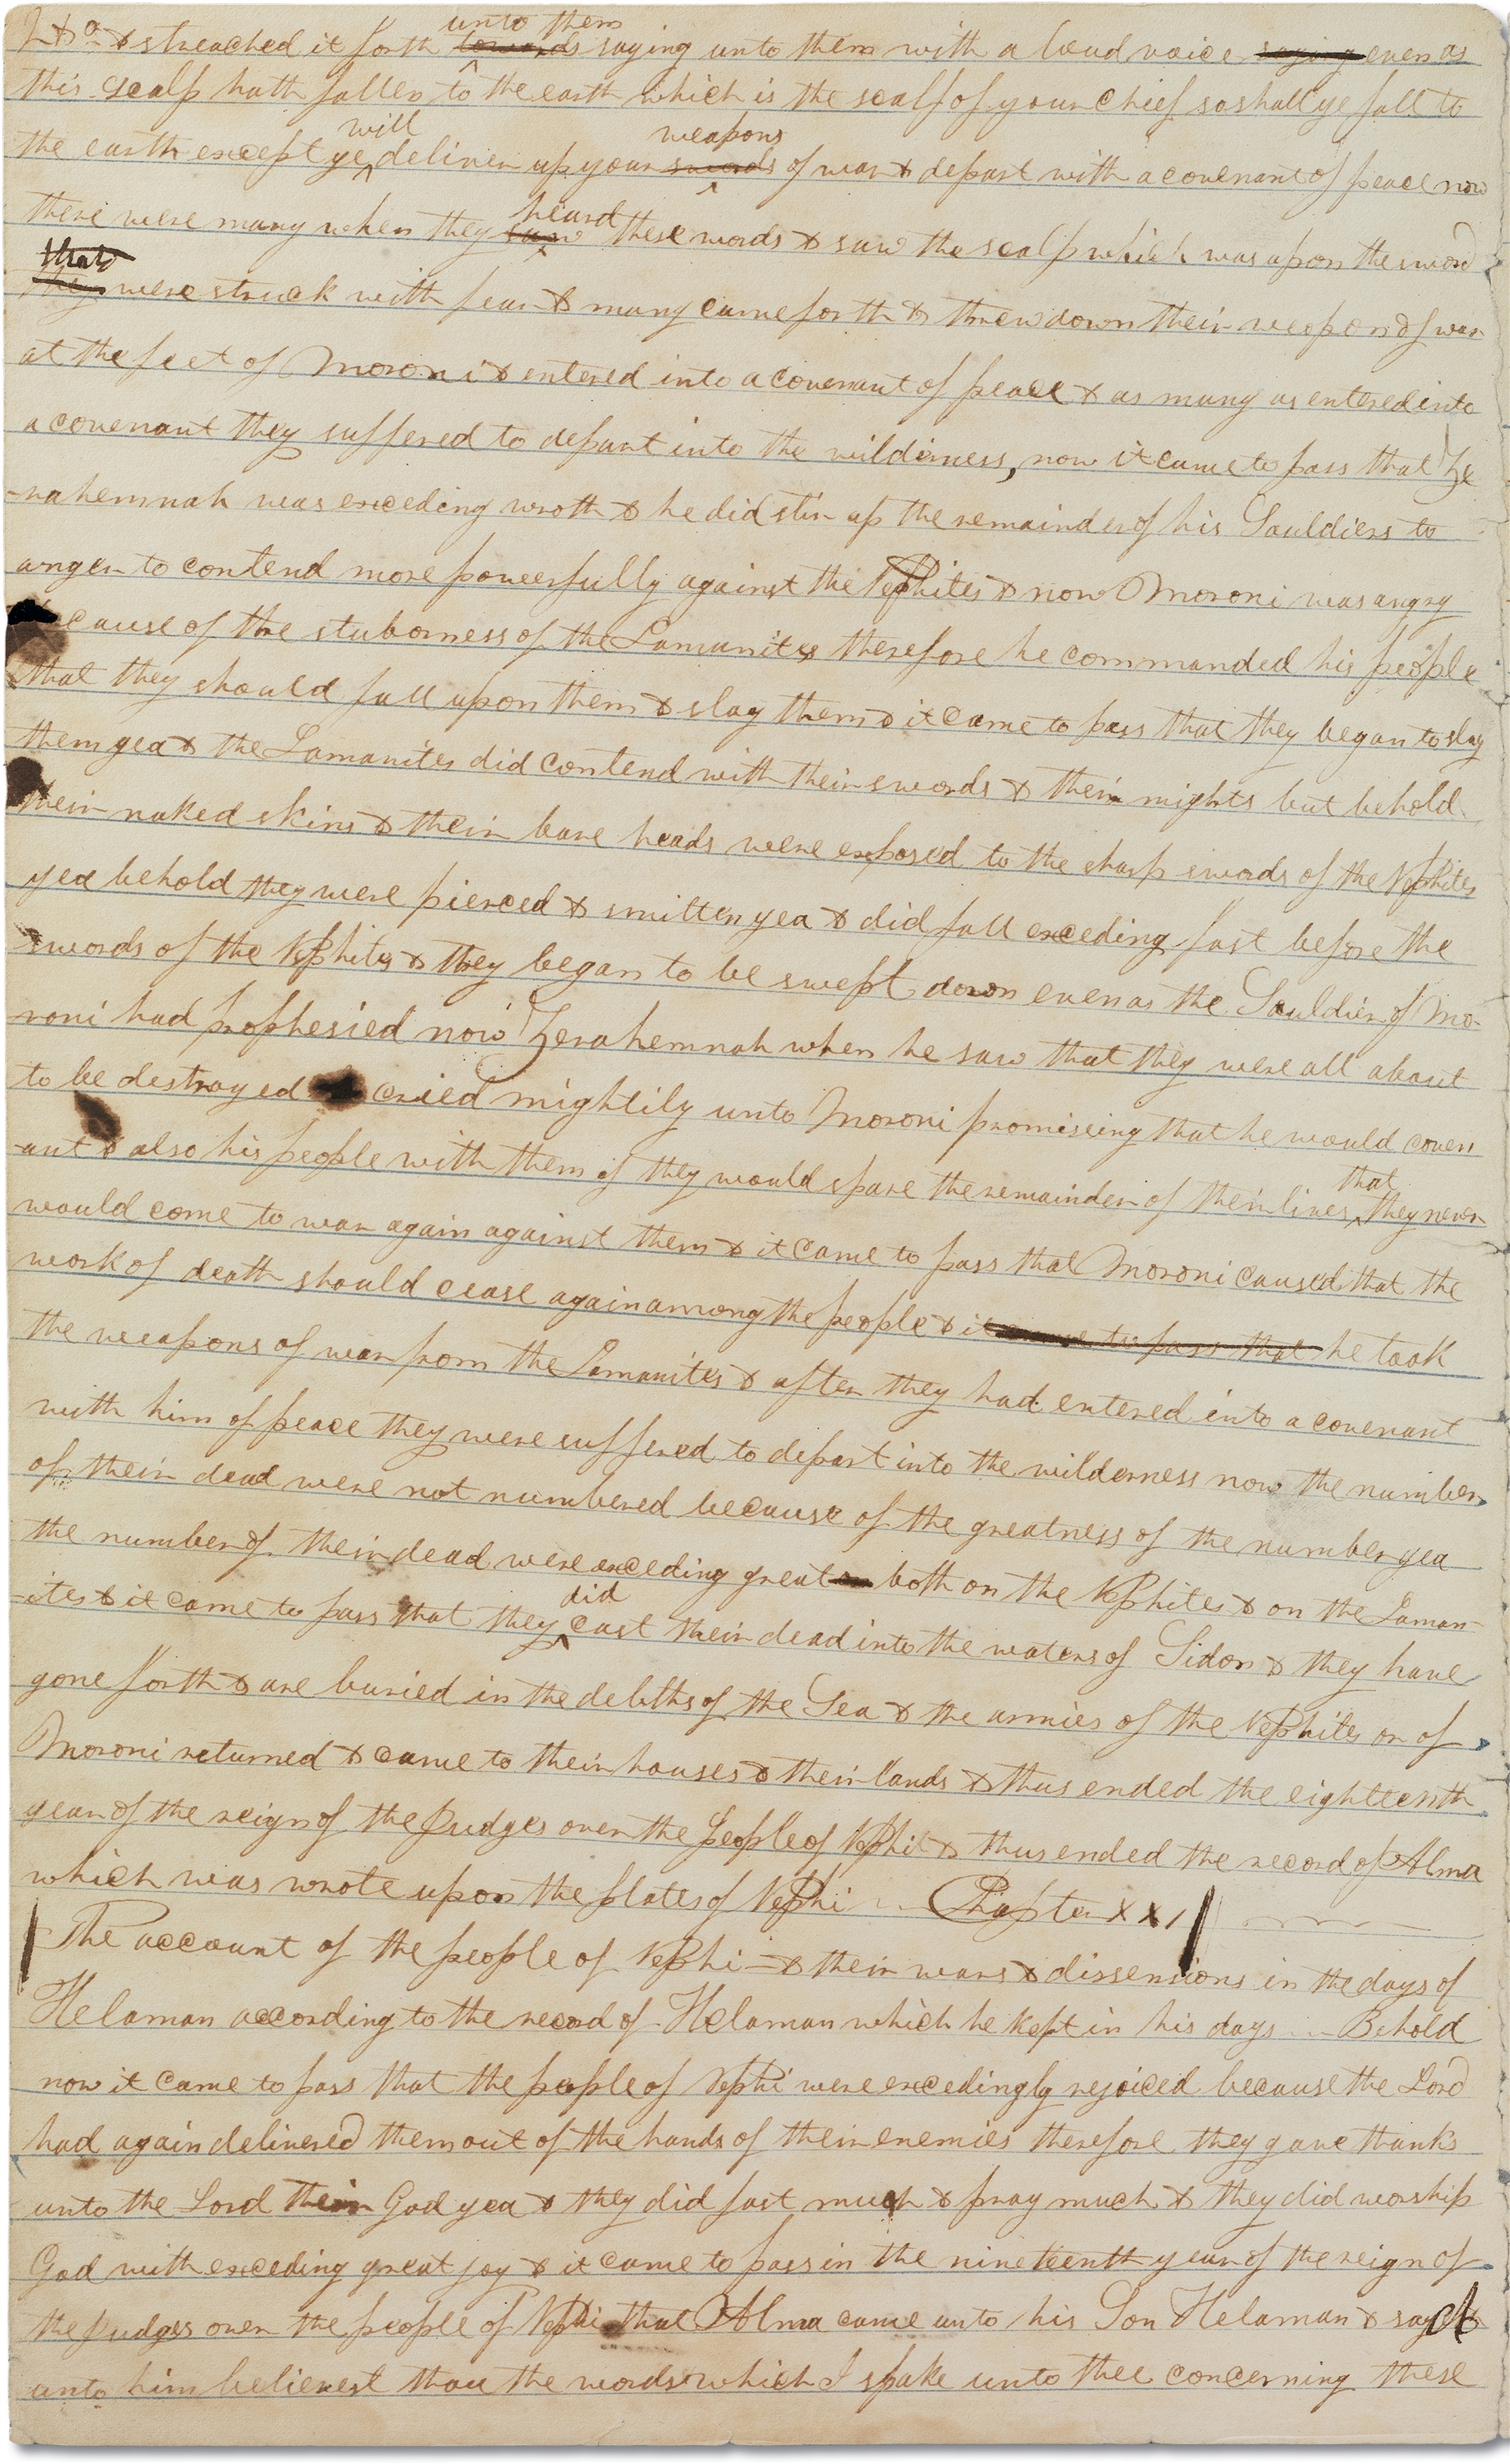 & streached it forth ^unto them towards saying unto them with a loud voice saying even as
this scalp hath fallen to the earth which is the scalp of your chief so shall ye fall to
the earth except ye ^will deliver up your ^weapons swords of war & depart with a covenant of peace now
there were many when they ^heard saw these words & saw the scalp which was upon the sword
that they were struck with fear & many came forth & threw down their weapons of war
at the feet of Moroni & entered into a covenant of peace & as many as entered into
a covenant they suffered to depart into the wilderness, now it came to pass that Ze
-rahemnah was exceding wroth & he did stir up the remainder of his Souldiers to
anger to contend more powerfully against the Nephites & now Moroni was angry
because of the stuborness of the Lamanites therefore he commanded his people
that they should fall upon them & slay them & it came to pass that they began to slay
them yea & the Lamanites did contend with their swords & their mights but behold
their naked skins & their bare heads were exposed to the sharp swords of the Nephites
yea behold they were pierced & smitten yea & did fall exceding fast before the
swords of the Nephites & they began to be swept down even as the Souldier of Mo-
roni had prophesied now Zerahemnah when he saw that they were all about
to be destroyed cried mightily unto Moroni promiseing that he would coven
-ant & also his people with them if they would spare the remainder of their lives ^that they never
would come to war again against them & it came to pass that Moroni caused that the
work of death should cease again among the people & it came to pass that he took
the weapons of war from the Lamanites & after they had entered into a covenant
with him of peace they were suffered to depart into the wilderness now the number
of their dead were not numbered because of the greatness of the number yea
the number of their dead were exceding great both on the Nephites & on the Laman-
-ites & it came to pass that they ^did cast their dead into the waters of Sidon & they have
gone forth & are buried in the debths of the Sea & the armies of the Nephites or of
Moroni returned & came to their houses & their lands & thus ended the eighteenth
year of the reign of the Judges over the People of Nephi & thus ended the record of Alma
which was wrote upon the plates of Nephi Chapter XXI
The account of the people of Nephi & their wars & dissensions in the days of
Helaman according to the record of Helaman which he kept in his days Behold
now it came to pass that the people of Nephi were excedingly rejoiced because the Lord
had again delivered them out of the hands of their enemies therefore they gave thanks
unto the Lord their God yea & they did fast much & pray much & they did worship
God with exceding great joy & it came to pass in the nineteenth year of the reign of
the Judges over the people of Nephi that Alma came unto his Son Helaman & sayeth
unto him believest thou the words which I spake unto thee concerning these